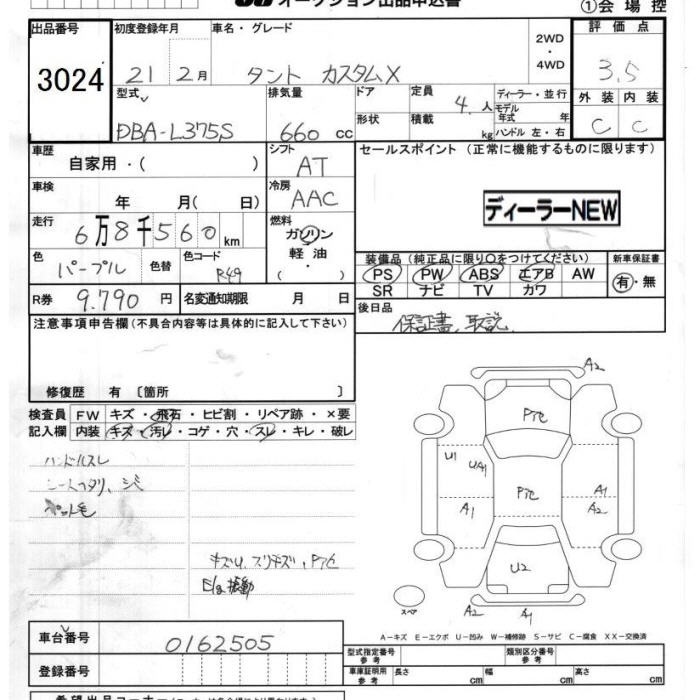 オークション出品申込書
①会場控
出品番号
3024
初度登録年月
21 2月
車名・グレード
タント カスタムX
2WD
・
4WD
評価点
3.5
外装 内装
C C
型式
DBA-L375S
排気量
660 cc
ドア
形状
定員
4.人
積載
kg
ディーラー・並行
モデル
年式 年
ハンドル 左・右
車歴
自家用・( )
シフト
AT
セールスポイント (正常に機能するものに限ります)
ディーラーNEW
車検
年 月( 日)
冷房
AAC
走行
6万8千560km
燃料
ガソリン
軽油
・( )
色
パープル
色替
色コード
R49
装備品(純正品に限り○をつけてください)
PS PW ABS エアB AW
SR ナビ TV カワ
新車保証書
有・無
R券 9.790円
名変通知期限 月 日
後日品
保証書、取説
注意事項申告欄(不具合内容等は具体的に記入して下さい)
修復歴 有 〔箇所 〕
検査員
記入欄
FW キズ・飛石・ヒビ割・リペア跡・×要
内装 キズ・汚レ・コゲ・穴・スレ・キレ・破レ
ハンドルスレ
シートヘタリ、シミ
ペット毛
キズU、スリキズ、Pアセ
E/g振動
A2
Pアセ
U1
UA1
Pアセ
A1
A1
A2
U2
スペア
A2
A1
A-キズ E-エクボ U-凹み W-補修跡 S-サビ C-腐食 XX-交換済
車台番号
0162505
登録番号
型式指定番号
参考
類別区分番号
参考
車庫証明用
参考
長さ cm
幅 cm
高さ cm